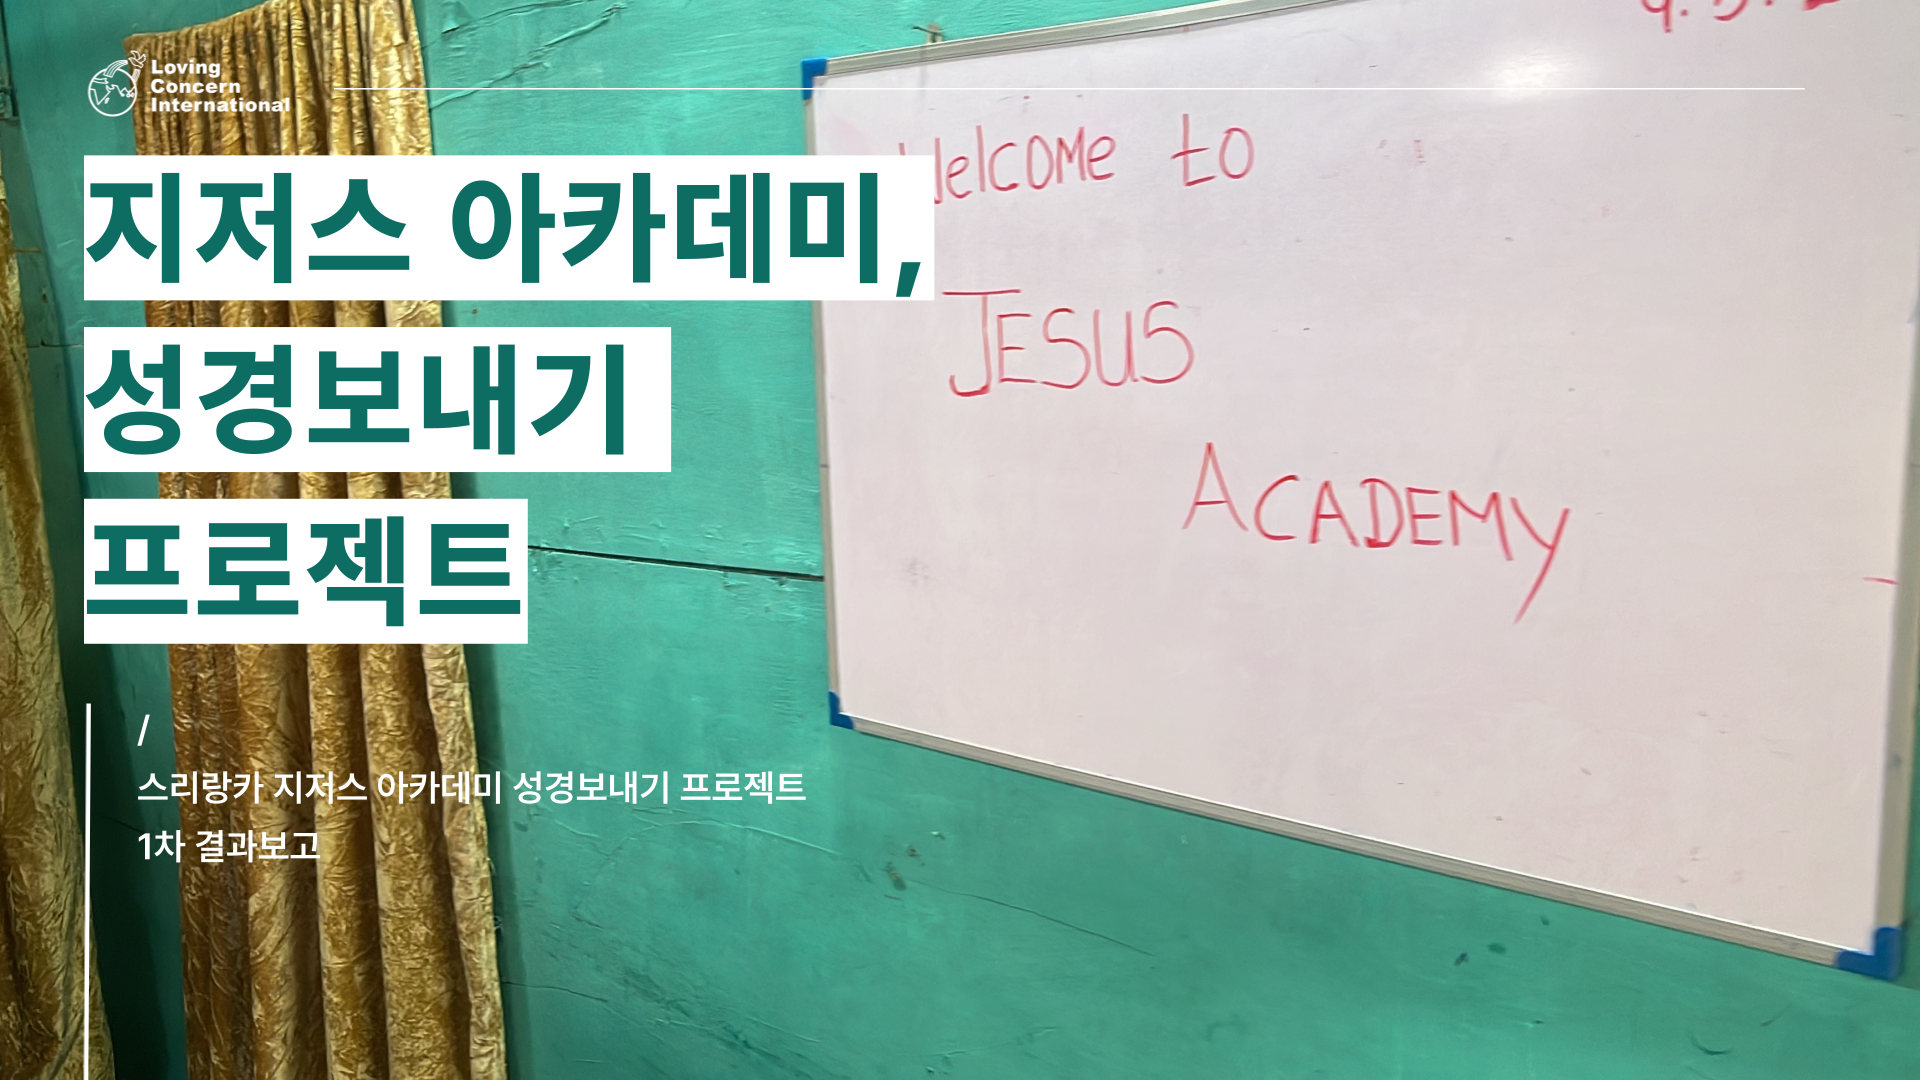 Loving
Concern
International
지저스 아카데미,
성경보내기
프로젝트
/
스리랑카 지저스 아카데미 성경보내기 프로젝트
1차 결과보고
Welcome to
JESUS
ACADEMY